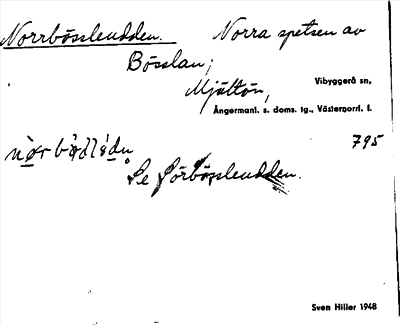 Norrbössleudden. Norra spetsen av
Bösslan;
Mjältön, Vibyggerå sn,
Ångermanl. s. doms. tg., Västernorrl. l.
795
Se Sörbössleudden.
Sven Hiller 1948